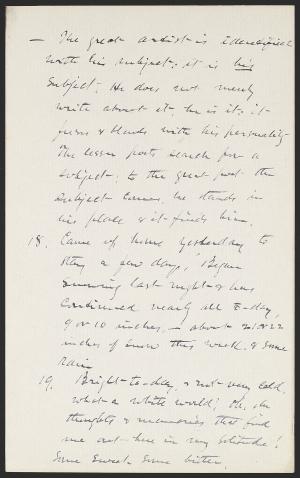 — The great artist is identified
with his subject; it is his
subject. He does not merely
write about it, he is it; it
fuses & blends with his personality
The lesser poets search for a
subject; to the great poet the
subject comes, he stands in
his place & it finds him.
18. Came up home yesterday to
stay a few days. Began
snowing last night & has
continued nearly all to-day,
9 or 10 inches, — about 21 or 22
inches of snow this week. & some
rain
19. Bright to-day, & not very cold.
what a white world! Oh, the
thoughts & memories that find
me out here in my solitude!
Some sweet, some bitter.